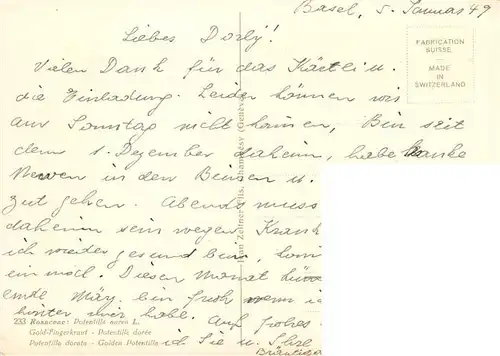 Basel, 5. Januar 49
Liebes Dorly!
Vielen Dank für das Kärtli u.
die Einladung. Leider können wir
am Sonntag nicht kommen, Bin seit
dem 1. Dezember daheim, habe kranke
Nerven in den Beinen u.
gehen. Abends muss
daheim sein wegen Krank
ich wieder gesund bin,
einmal. Diesen Monat
ende März. bin froh wenn
hinter mir habe. Auf frohes
ich Sie u. Ihre
FABRICATION
SUISSE
MADE IN
SWITZERLAND
Jean Zellner
(Genève)
233 Rosaceae: Potentilla aurea L.
Gold-Fingerkraut - Potentille dorée
Potentilla dorata - Golden Potentilla